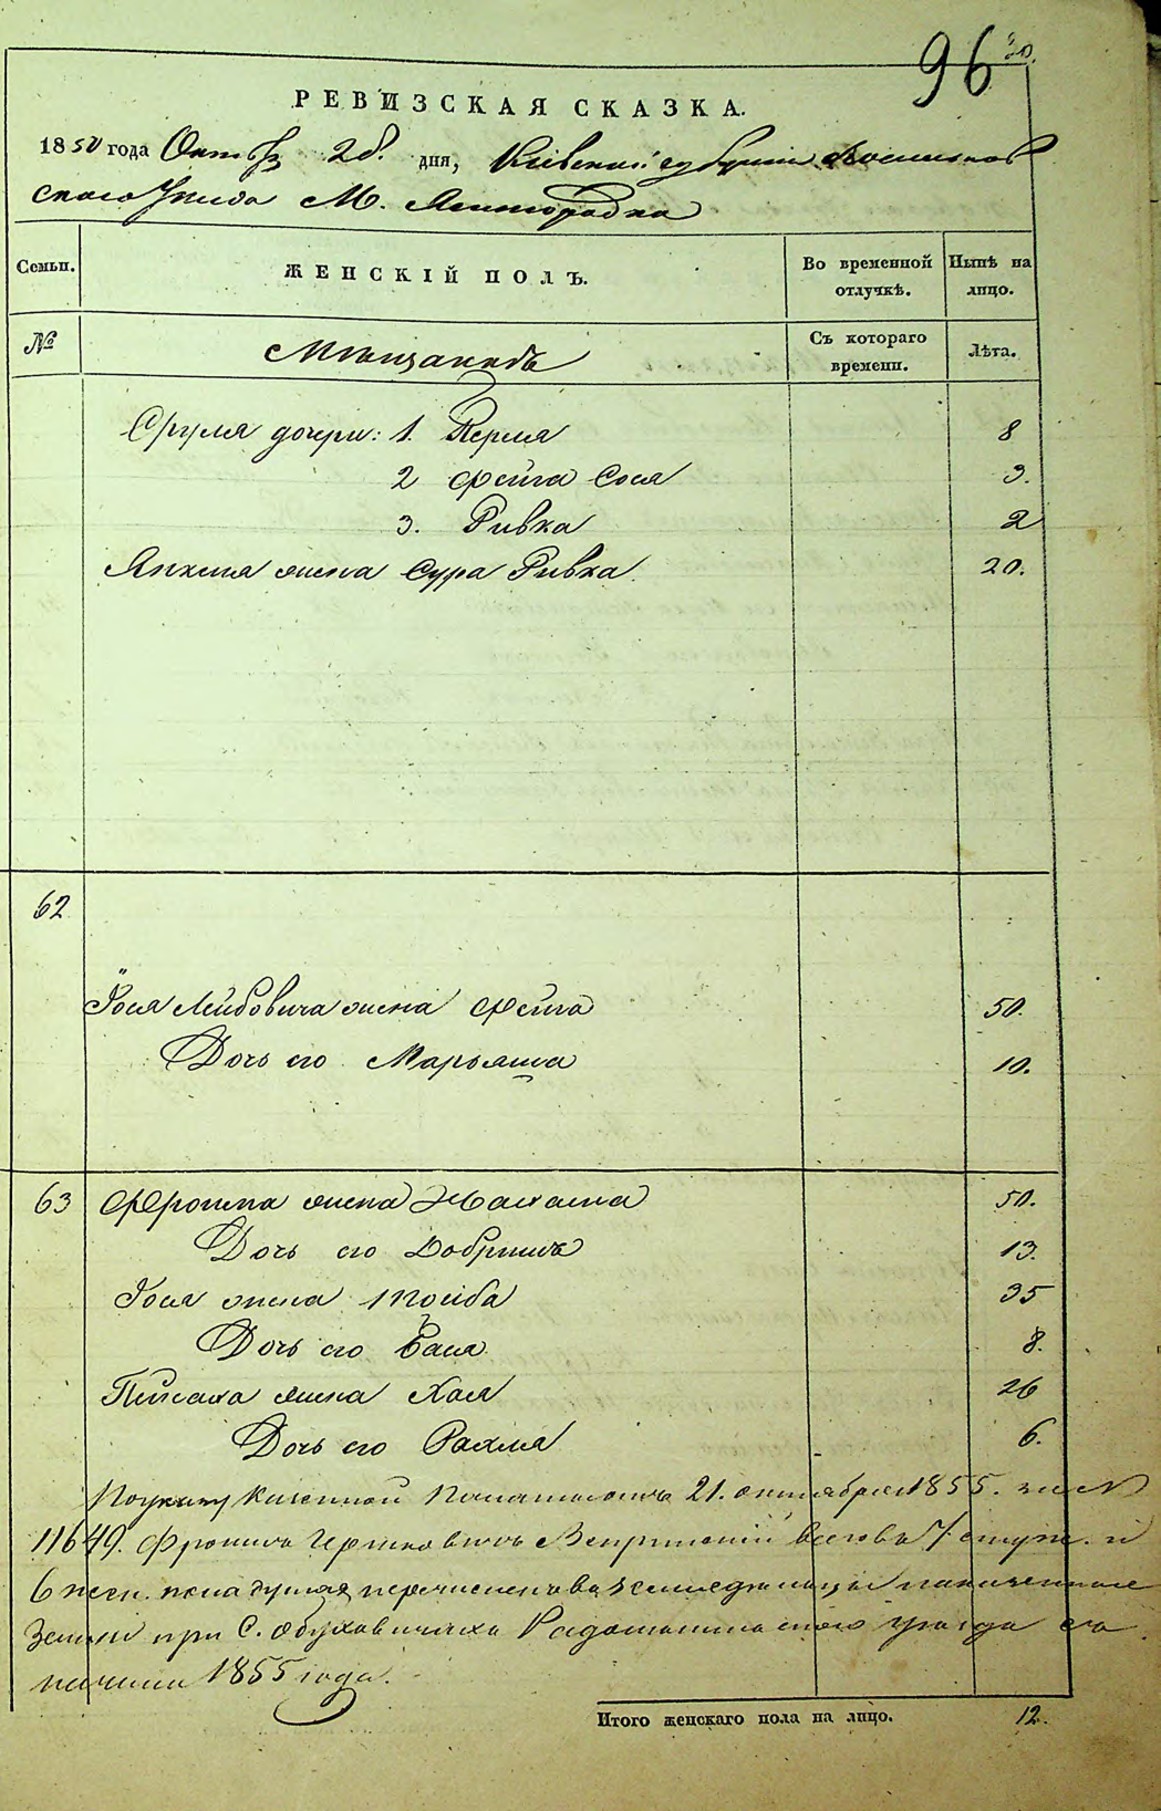 96
РЕВИЗСКАЯ СКАЗКА.
1850 года Октбр 26. дня, Кіевской губерніи Васильков
скаго Уезда М. Ясногородка
Семьи.
ЖЕНСКІЙ ПОЛЪ.
Во временной отлучкѣ.
Нынѣ на лицо.
№
Мѣщанъ
Съ котораго времени.
Лѣта.
Сруля дочери: 1. Перля 8
2 Фейга Сося 3.
3. Ривка 2
Янкеля жена Сура Ривка. 20.
62
Іося Лейбовича жена Фейга 50.
Дочь его Марьяша 10.
63 Фроима жена 50.
Дочь его Добришъ 13.
Іося жена Тойба 35
Дочь его Бася 8.
Пейсаха жена Хая 26
Дочь его Рахля 6.
По указу Казенной Палаты отъ 21. октября 1855. за №
11649. Фроимъ Гершковичъ всего въ 7 муж. и
6 женс. пола душах перечислен в земледельцы на казенные
земли при С. Обуховичахъ Радомысльского уезда съ
1855 года.
Итого женскаго пола на лицо. 12.